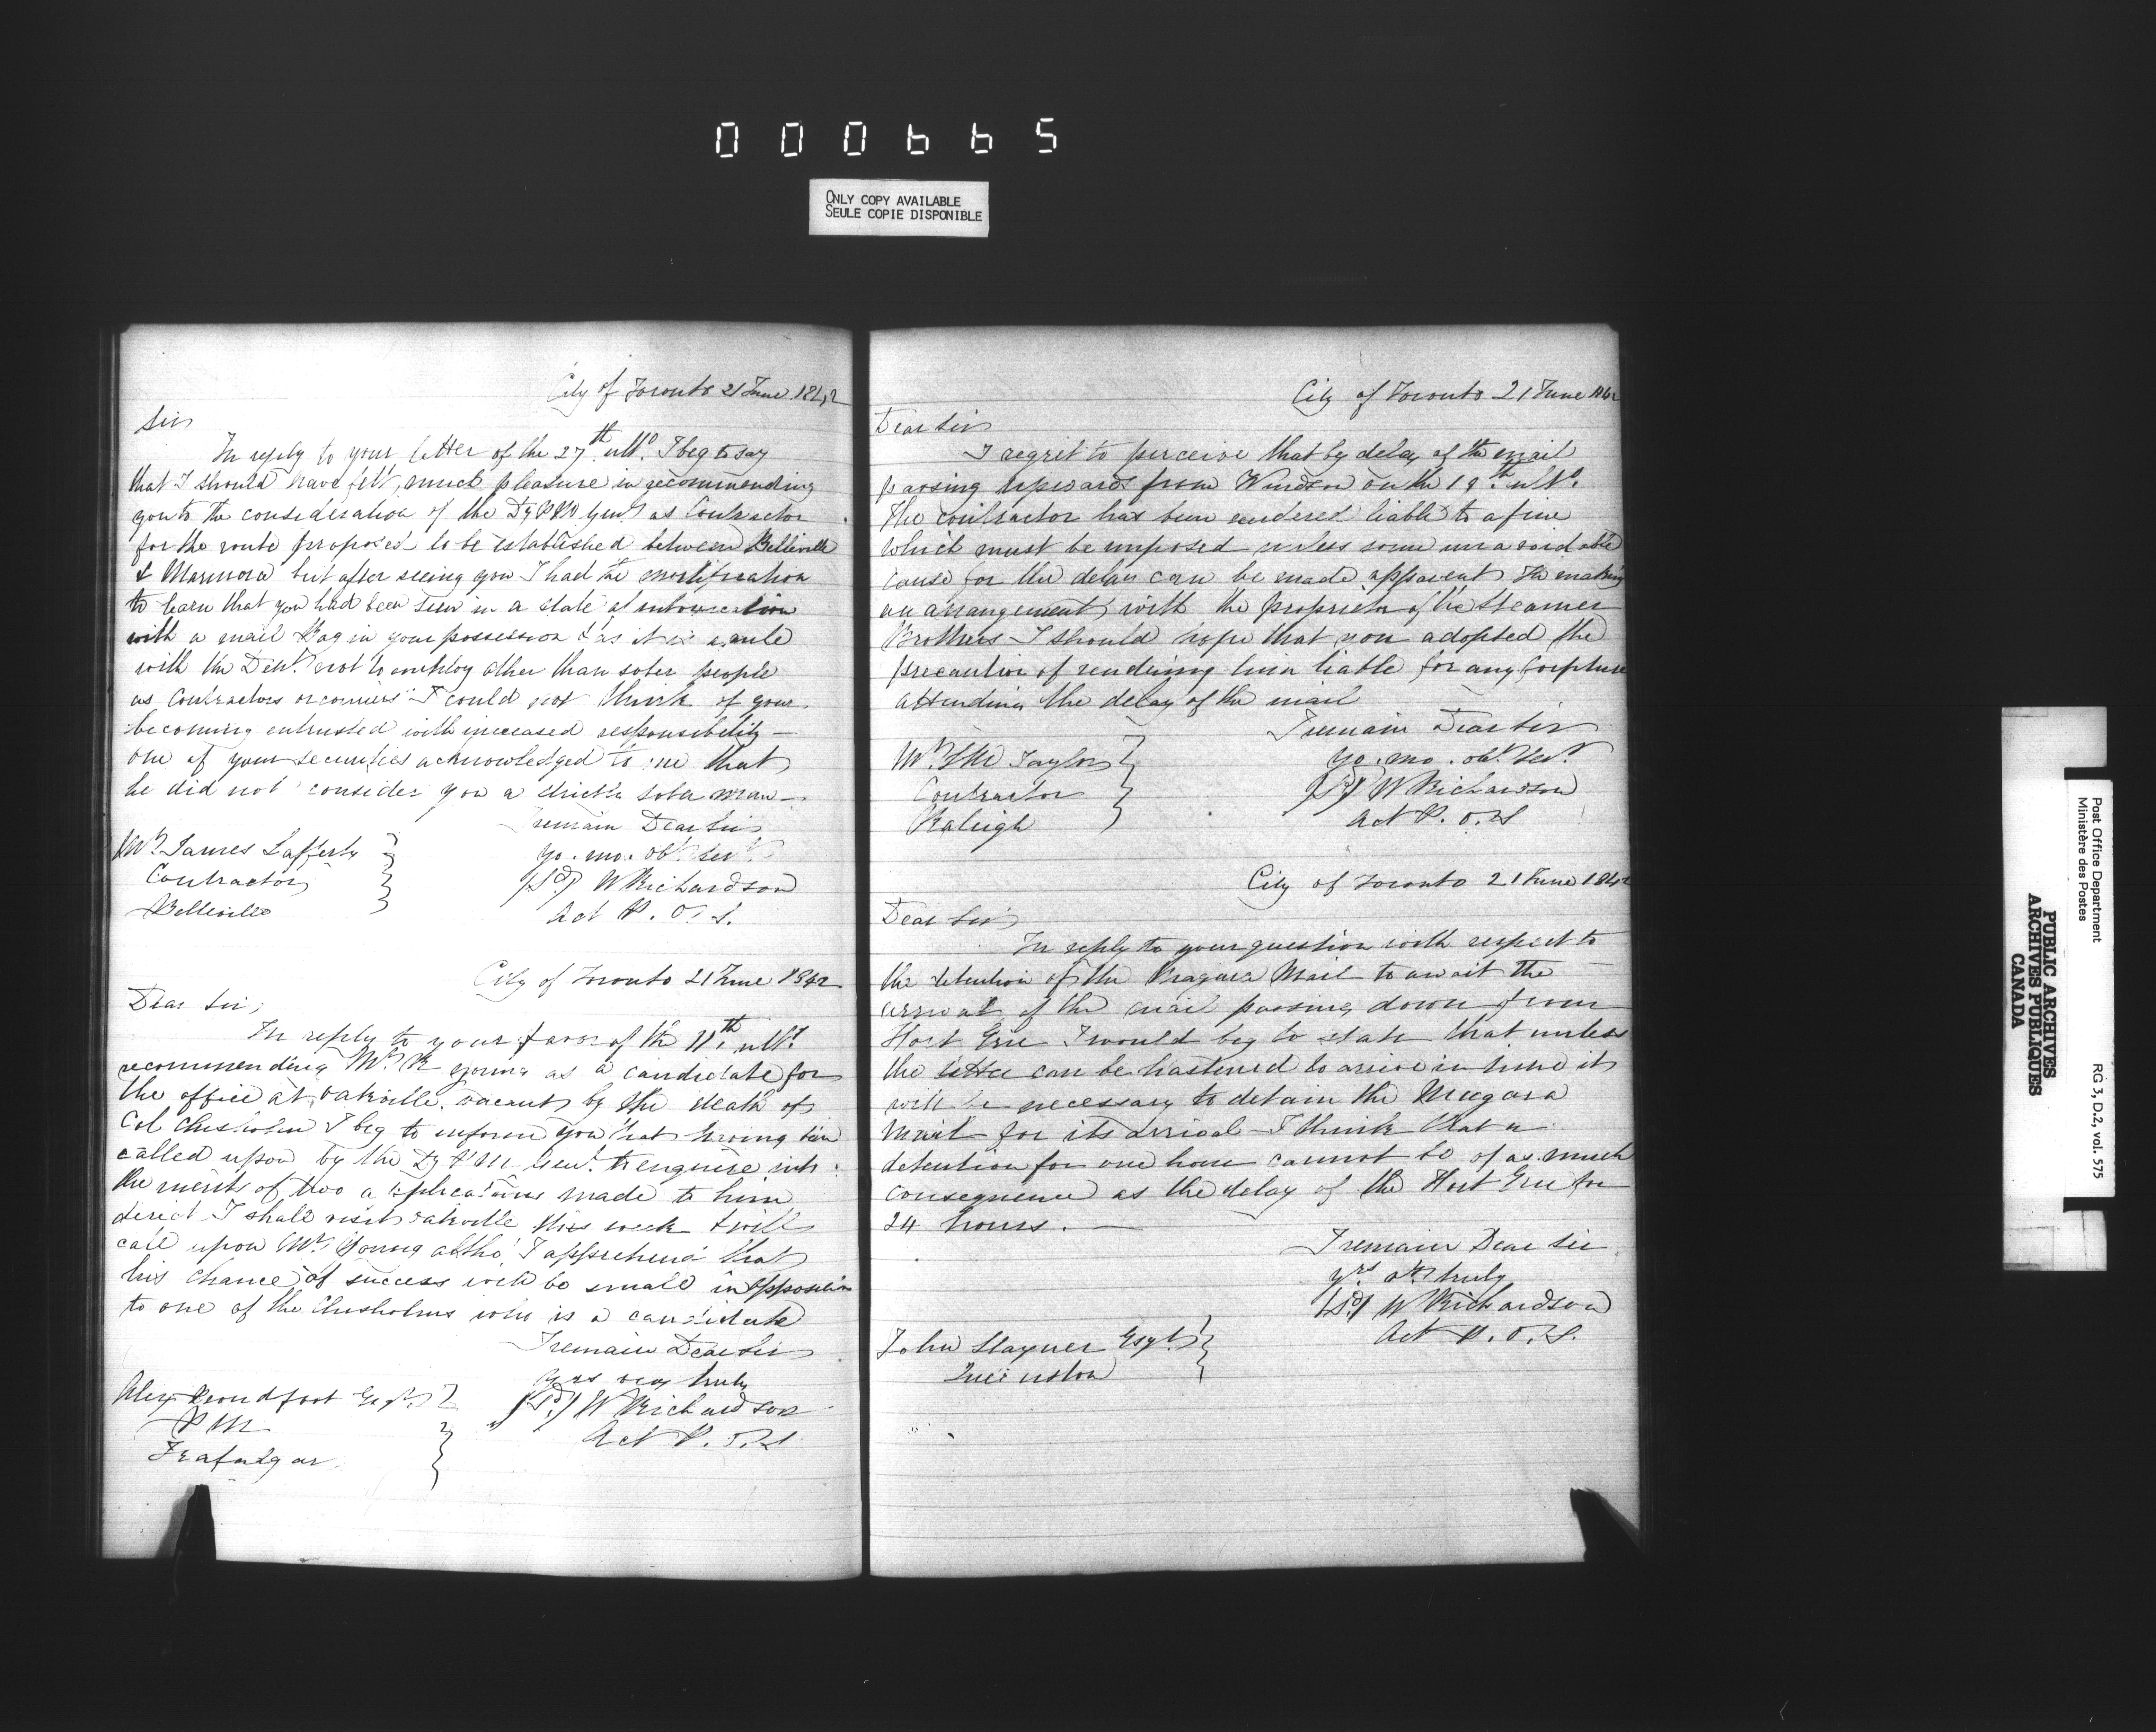 000665
ONLY COPY AVAILABLE
SEULE COPIE DISPONIBLE
City of Toronto 21 June 1842
Sir
In reply to your letter of the 27th ulto. I beg to say
that I should have felt much pleasure in recommending
you to the consideration of the Dy P M Genl as Contractor
for the route proposed to be established between Belleville
& Marmora but after seeing you I had the mortification
to learn that you had been seen in a state of intoxication
with a mail Bag in your possession & as it is a rule
with the Dept. not to employ other than sober people
as Contractors or couriers I could not think of your
becoming entrusted with increased responsibility —
one of your securities acknowledged to me that
he did not consider you a strictly sober man —
I remain Dear Sir
yo. mo. obt. Sert.
(Sd) W Richardson
Act P. O. S.
Mr. James Lafferty
Contractor
Belleville
City of Toronto 21 June 1842
Dear Sir,
In reply to your favor of the 11th ulto.
recommending Mr. R Young as a candidate for
the office at Oakville vacant by the death of
Col Chisholm I beg to inform you that having been
called upon by the Dy P M Genl. to enquire into
the merits of two applications made to him
direct I shall visit Oakville this week & will
call upon Mr. Young altho' I apprehend that
his chance of success will be small in opposition
to one of the Chisholms who is a candidate
I remain Dear Sir
yrs very truly
(Sd) W Richardson
Act P. O. S
Alex Proudfoot Esqr.
P M
Trafalgar
City of Toronto 21 June 1842
Dear Sir
I regret to perceive that by delay of the mail
passing upwards from Windsor on the 18th. ulto.
the contractor has been rendered liable to a fine
which must be imposed unless some unavoidable
cause for the delay can be made apparent In making
an arrangement with the proprietor of the Steamer
Brothers I should hope that you adopted the
precaution of rendering him liable for any forfeiture
attending the delay of the mail
I remain Dear Sir
yo. mo. obt. Sert.
(Sd) W Richardson
Act P. O. S
Mr. Taylor
Contractor
Raleigh
City of Toronto 21 June 1842
Dear Sir
In reply to your question with respect to
the detention of the Niagara Mail to await the
arrival of the mail passing down from
Fort Erie I would beg to state that unless
the latter can be hastened to arrive in time it
will be necessary to detain the Niagara
Mail for its arrival I think that a
detention for one hour cannot be of as much
consequence as the delay of the Fort Erie for
24 hours. —
I remain Dear Sir
yrs. truly
(Sd) W Richardson
Act P. O. S.
John Stayner Esqr.
Queenston
Post Office Department
Ministère des Postes
RG 3, D.2, vol. 575
PUBLIC ARCHIVES
ARCHIVES PUBLIQUES
CANADA